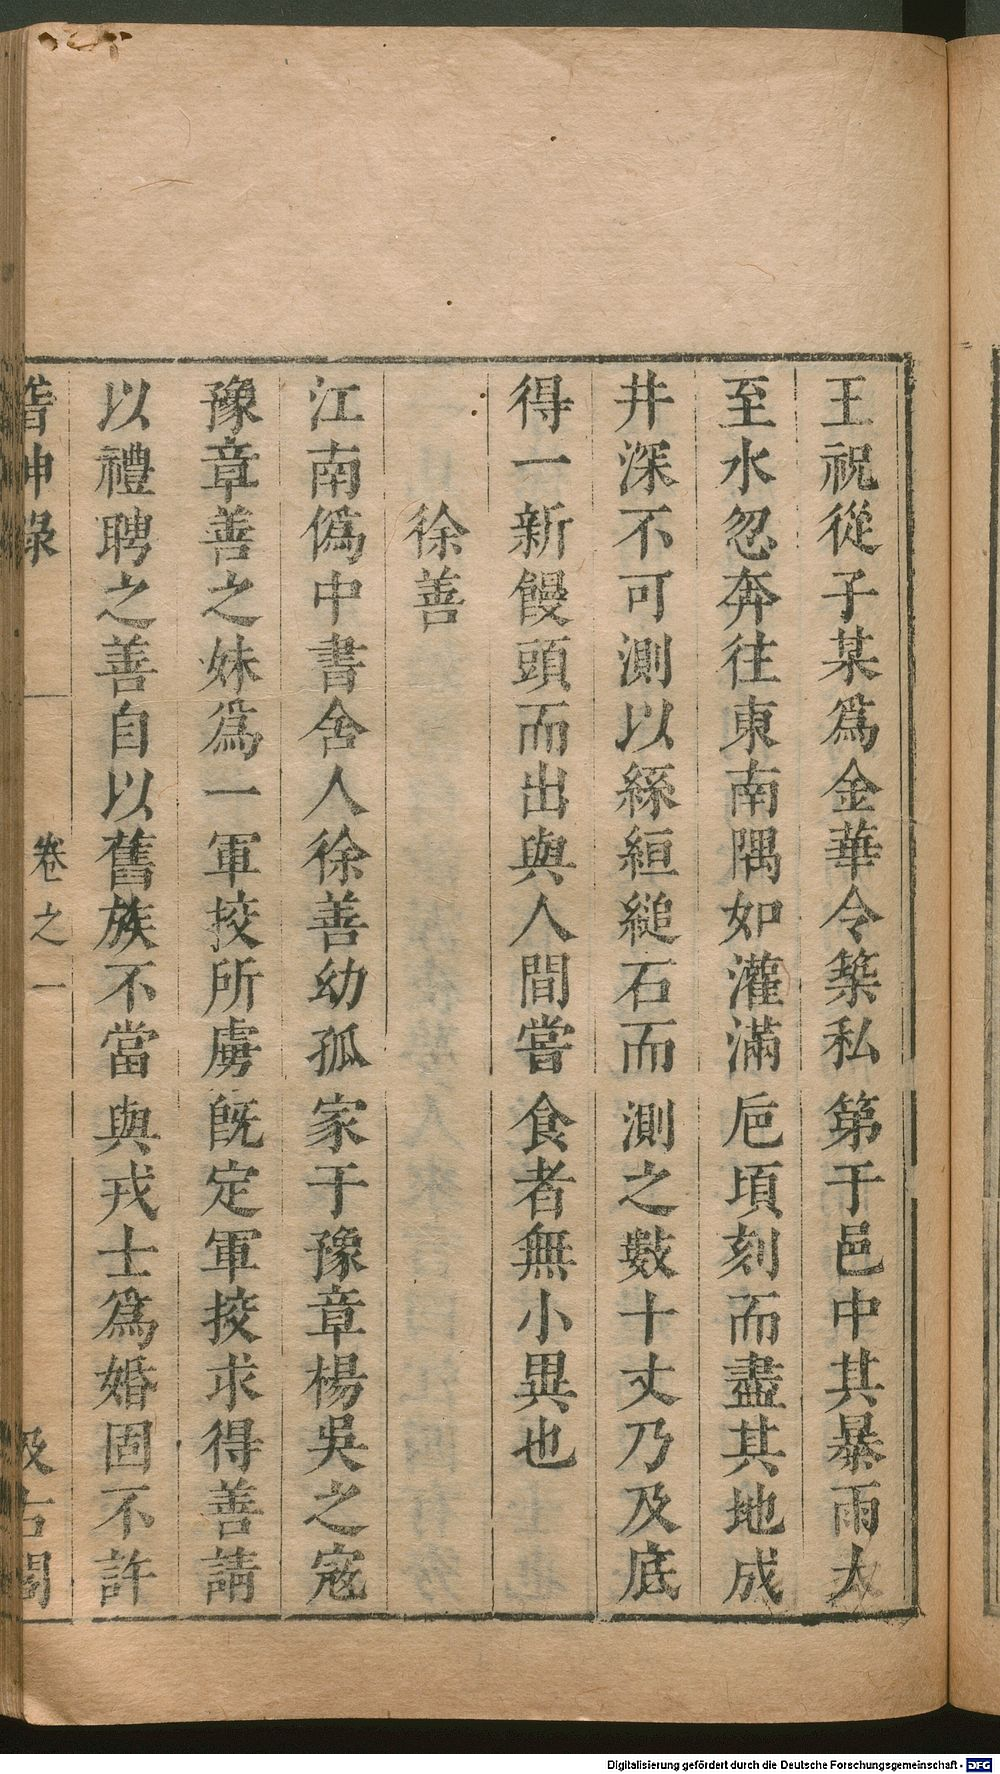 王祝從子某爲金華令築私第于邑中其暴雨大
至水忽奔往東南隅如灌滿巵頃刻而盡其地成
井深不可測以絲絙縋石而測之數十丈乃及底
得一新饅頭而出與人間嘗食者無小異也
徐善
江南僞中書舍人徐善幼孤家于豫章楊吳之寇
豫章善之妹爲一軍挍所虜旣定軍挍求得善請
以禮聘之善自以舊族不當與戎士爲婚固不許
稽神錄
卷之一
汲古閣
Digitalisierung gefördert durch die Deutsche Forschungsgemeinschaft - DFG